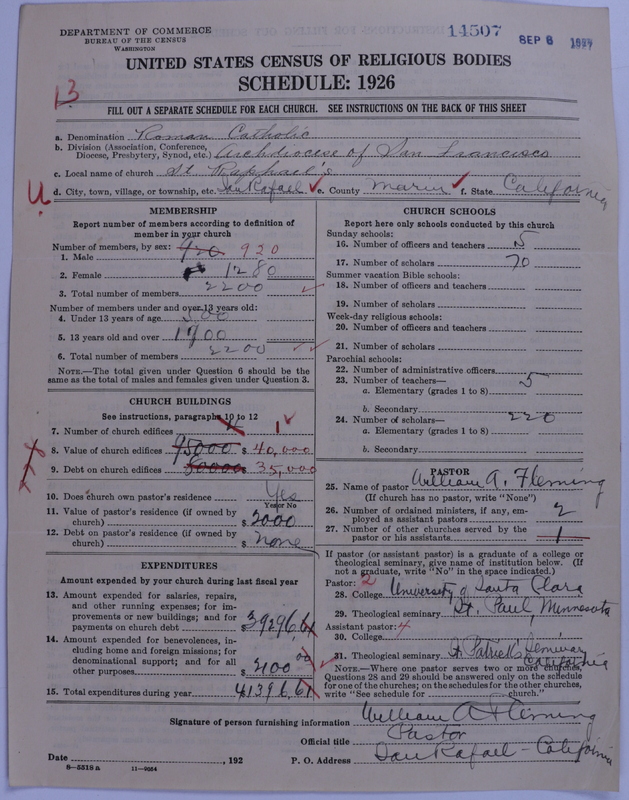 DEPARTMENT OF COMMERCE
BUREAU OF THE CENSUS
WASHINGTON
14507
SEP 8 1927
UNITED STATES CENSUS OF RELIGIOUS BODIES
SCHEDULE: 1926
13
FILL OUT A SEPARATE SCHEDULE FOR EACH CHURCH. SEE INSTRUCTIONS ON THE BACK OF THIS SHEET
a. Denomination Roman Catholic
b. Division (Association, Conference, Diocese, Presbytery, Synod, etc.) Archdiocese of San Francisco
c. Local name of church St. Raphael's
U. d. City, town, village, or township, etc. San Rafael e. County Marin f. State California
MEMBERSHIP
Report number of members according to definition of
member in your church
Number of members, by sex:
1. Male 920 920
2. Female 1280
3. Total number of members 2200
Number of members under and over 13 years old:
4. Under 13 years of age 500
5. 13 years old and over 1700
6. Total number of members 2200
NOTE.—The total given under Question 6 should be the
same as the total of males and females given under Question 3.
CHURCH BUILDINGS
See instructions, paragraphs 10 to 12
7. Number of church edifices 1
8. Value of church edifices 95000 $ 40,000
9. Debt on church edifices 35,000
10. Does church own pastor's residence Yes
Yes or No
11. Value of pastor's residence (if owned by
church) $ 2000
12. Debt on pastor's residence (if owned by
church) $ none
EXPENDITURES
Amount expended by your church during last fiscal year
13. Amount expended for salaries, repairs,
and other running expenses; for im-
provements or new buildings; and for
payments on church debt $ 39296.61
14. Amount expended for benevolences, in-
cluding home and foreign missions; for
denominational support; and for all
other purposes $ 2100 00
15. Total expenditures during year 41396.61
CHURCH SCHOOLS
Report here only schools conducted by this church
Sunday schools:
16. Number of officers and teachers 5
17. Number of scholars 70
Summer vacation Bible schools:
18. Number of officers and teachers
19. Number of scholars
Week-day religious schools:
20. Number of officers and teachers
21. Number of scholars
Parochial schools:
22. Number of administrative officers
23. Number of teachers—
a. Elementary (grades 1 to 8) 5
b. Secondary
24. Number of scholars—
a. Elementary (grades 1 to 8) 220
b. Secondary
PASTOR
25. Name of pastor William A. Fleming
(If church has no pastor, write "None")
26. Number of ordained ministers, if any, em-
ployed as assistant pastors 2
27. Number of other churches served by the
pastor or his assistants 1
If pastor (or assistant pastor) is a graduate of a college or
theological seminary, give name of institution below. (If
not a graduate, write "No" in the space indicated.)
Pastor: 2
28. College University of Santa Clara
29. Theological seminary St. Paul, Minnesota
Assistant pastor: 4
30. College
31. Theological seminary St Patricks Seminary
California
NOTE.—Where one pastor serves two or more churches,
Questions 28 and 29 should be answered only on the schedule
for one of the churches; on the schedules for the other churches,
write "See schedule for church."
Signature of person furnishing information William A Fleming
Official title Pastor
Date , 192 P. O. Address San Rafael - California
8-5518 a 11-9054